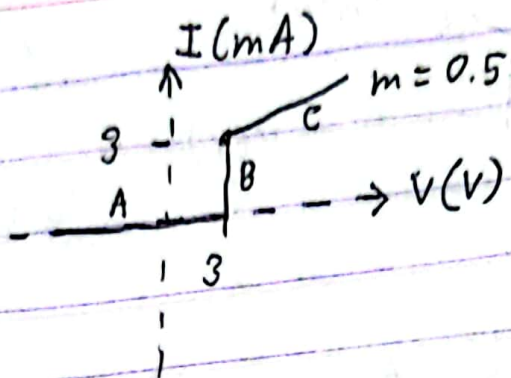 I(mA)
m = 0.5
C
3
B
A
V(V)
3